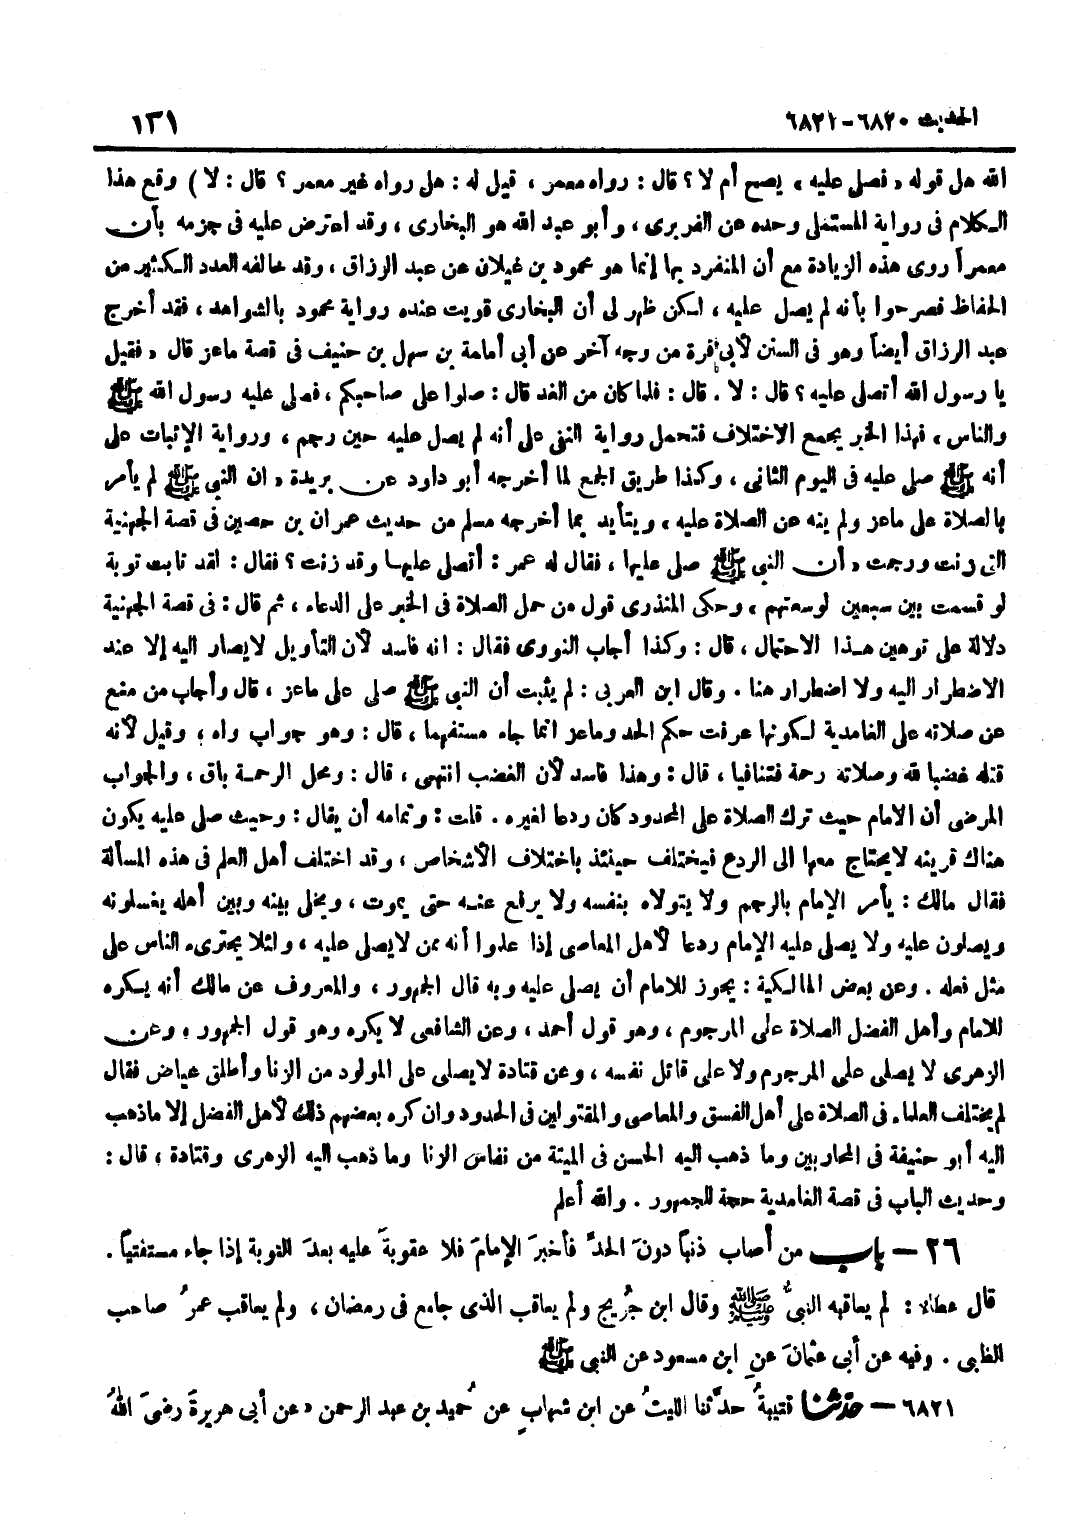 الحديث ٦٨٢٠-٦٨٢١ ١٣١
الله هل قوله « فصلى عليه » يصح أم لا ؟ قال : رواه معمر ، قيل له : هل رواه غير معمر ؟ قال : لا ) وقع هذا
الكلام فى رواية المستملى وحده عن الفربرى ، وأبو عبد الله هو البخارى ، وقد اعترض عليه فى جزمه بأن
معمراً روى هذه الزيادة مع أن المنفرد بها إنما هو محمود بن غيلان عن عبد الرزاق ، وقد خالفه العدد الكثير من
الحفاظ فصرحوا بأنه لم يصل عليه ، لكن ظهر لى أن البخارى قويت عنده رواية محمود بالشواهد ، فقد أخرج
عبد الرزاق أيضاً وهو فى السنن لأبى قرة من وجه آخر عن أبى أمامة بن سهل بن حنيف فى قصة ماعز قال « فقيل
يا رسول الله أتصلى عليه ؟ قال : لا . قال : فلما كان من الغد قال : صلوا على صاحبكم ، فصلى عليه رسول الله ﷺ
والناس ، فهذا الخبر يجمع الاختلاف فتحمل رواية النفى على أنه لم يصل عليه حين رجم ، ورواية الإثبات على
أنه ﷺ صلى عليه فى اليوم الثانى ، وكذا طريق الجمع لما أخرجه أبو داود عن بريدة « ان النبى ﷺ لم يأمر
بالصلاة على ماعز ولم ينه عن الصلاة عليه ، ويتأيد بما أخرجه مسلم من حديث عمران بن حصين فى قصة الجهنية
التى زنت ورجمت « أن النبى ﷺ صلى عليها ، فقال له عمر : أتصلى عليها وقد زنت ؟ فقال : لقد تابت توبة
لو قسمت بين سبعين لوسعتهم ، وحكى المنذرى قول من حمل الصلاة فى الخبر على الدعاء ، ثم قال : فى قصة الجهنية
دلالة على توهين هذا الاحتمال ، قال : وكذا أجاب النووى فقال : انه فاسد لأن التأويل لا يصار اليه إلا عند
الاضطرار اليه ولا اضطرار هنا . وقال ابن العربى : لم يثبت أن النبى ﷺ صلى على ماعز ، قال وأجاب من منع
عن صلاته على الغامدية لكونها عرفت حكم الحد وماعز انما جاء مستفهما ، قال : وهو جواب واه ، وقيل لأنه
قتله غضبا لله وصلاته رحمة فتنافيا ، قال : وهذا فاسد لأن الغضب انتهى ، قال : ومحل الرحمة باق ، والجواب
المرضى أن الامام حيث ترك الصلاة على المحدود كان ردعا لغيره . قلت : وتمامه أن يقال : وحيث صلى عليه يكون
هناك قرينة لا يحتاج معها الى الردع فيختلف حينئذ باختلاف الأشخاص ، وقد اختلف أهل العلم فى هذه المسألة
فقال مالك : يأمر الإمام بالرجم ولا يتولاه بنفسه ولا يرفع عنه حتى يموت ، ويخلى بينه وبين أهله يغسلونه
ويصلون عليه ولا يصلى عليه الإمام ردعا لأهل المعاصى إذا علموا أنه ممن لا يصلى عليه ، ولئلا يجترىء الناس على
مثل فعله . وعن بعض المالكية : يجوز للامام أن يصلى عليه وبه قال الجمهور ، والمعروف عن مالك أنه يكره
للامام وأهل الفضل الصلاة على المرجوم ، وهو قول أحمد ، وعن الشافعى لا يكره وهو قول الجمهور ، وعن
الزهرى لا يصلى على المرجوم ولا على قاتل نفسه ، وعن قتادة لا يصلى على المولود من الزنا وأطلق عياض فقال
لم يختلف العلماء فى الصلاة على أهل الفسق والمعاصى والمقتولين فى الحدود وان كره بعضهم ذلك لأهل الفضل إلا ماذهب
اليه أبو حنيفة فى المحاربين وما ذهب اليه الحسن فى الميتة من نفاس الزنا وما ذهب اليه الزهرى وقتادة ، قال :
وحديث الباب فى قصة الغامدية حجة للجمهور . والله أعلم
٢٦ – باب من أصاب ذنباً دونَ الحدِّ فأخبرَ الإمامَ فلا عقوبةَ عليه بعدَ التوبة إذا جاء مستفتياً .
قال عطاء : لم يعاقبه النبىُّ ﷺ وقال ابن جُريج ولم يعاقب الذى جامع فى رمضان ، ولم يعاقب عمرُ صاحب
الظبى . وفيه عن أبى عثمانَ عنِ ابن مسعود عن النبى ﷺ
٦٨٢١ – حدّثنا قتيبةُ حدَّثنا الليثُ عن ابن شهابٍ عن حُميد بن عبد الرحمن « عن أبى هريرةَ رضىَ اللهُ